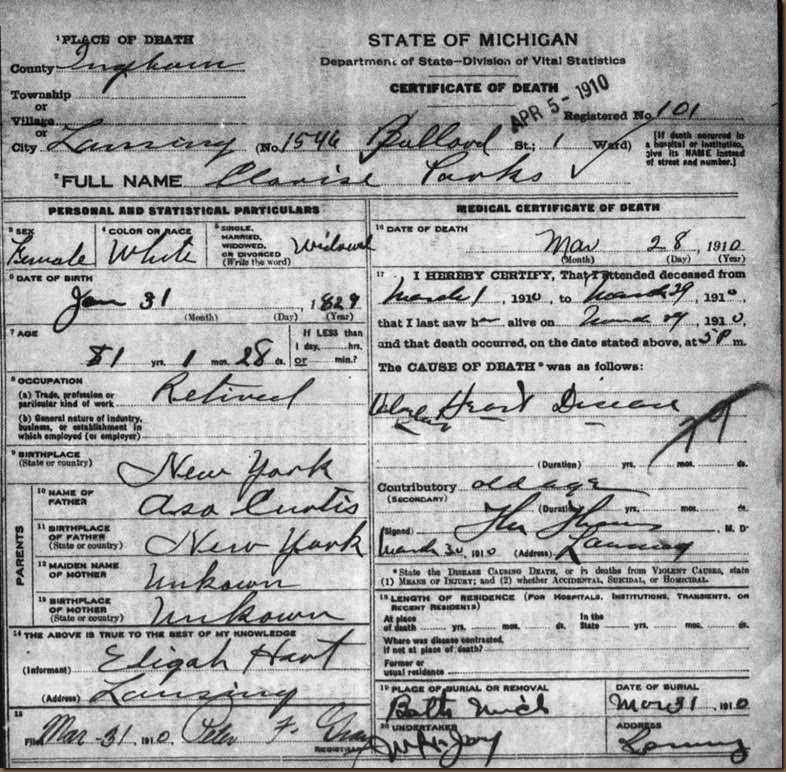 STATE OF MICHIGAN
Department of State—Division of Vital Statistics
CERTIFICATE OF DEATH
APR 5 - 1910
Registered No. 101
1 PLACE OF DEATH
County Ingham
Township
or
Village
or
City Lansing (No. 1546 Ballard St.; 1 Ward)
[If death occurred in a hospital or institution, give its NAME instead of street and number.]
2 FULL NAME Clarise Parks
PERSONAL AND STATISTICAL PARTICULARS
3 SEX
Female
4 COLOR OR RACE
White
5 SINGLE, MARRIED, WIDOWED, OR DIVORCED (Write the word)
Widowed
6 DATE OF BIRTH
Jan 31 1829
(Month) (Day) (Year)
7 AGE
81 yrs. 1 mos. 28 ds.
If LESS than 1 day, hrs. or min.?
8 OCCUPATION
(a) Trade, profession or particular kind of work
Retired
(b) General nature of industry, business, or establishment in which employed (or employer)
9 BIRTHPLACE
(State or country)
New York
PARENTS
10 NAME OF FATHER
Asa Curtis
11 BIRTHPLACE OF FATHER
(State or country)
New York
12 MAIDEN NAME OF MOTHER
Unkown
13 BIRTHPLACE OF MOTHER
(State or country)
Unkown
14 THE ABOVE IS TRUE TO THE BEST OF MY KNOWLEDGE
(Informant) Eligah Hart
(Address) Lansing
15
Filed Mar - 31, 1910 Peter F. Gray
REGISTRAR
MEDICAL CERTIFICATE OF DEATH
16 DATE OF DEATH
Mar 28, 1910
(Month) (Day) (Year)
17 I HEREBY CERTIFY, That I attended deceased from
March 1, 1910, to March 29, 1910,
that I last saw her alive on March 29, 1910,
and that death occurred, on the date stated above, at 5 P m.
The CAUSE OF DEATH* was as follows:
Heart Disease
79
(Duration) yrs. mos. ds.
Contributory old age
(SECONDARY)
(Duration) yrs. mos. ds.
(Signed) M. D.
March 30, 1910 (Address) Lansing
*State the DISEASE CAUSING DEATH, or in deaths from VIOLENT CAUSES, state
(1) MEANS OF INJURY; and (2) whether ACCIDENTAL, SUICIDAL, or HOMICIDAL.
18 LENGTH OF RESIDENCE (FOR HOSPITALS, INSTITUTIONS, TRANSIENTS, OR RECENT RESIDENTS)
At place of death yrs. mos. ds. In the State yrs. mos. ds.
Where was disease contracted, if not at place of death?
Former or usual residence
19 PLACE OF BURIAL OR REMOVAL
Bath Mich
DATE OF BURIAL
Mar 31, 1910
20 UNDERTAKER
ADDRESS
Lansing